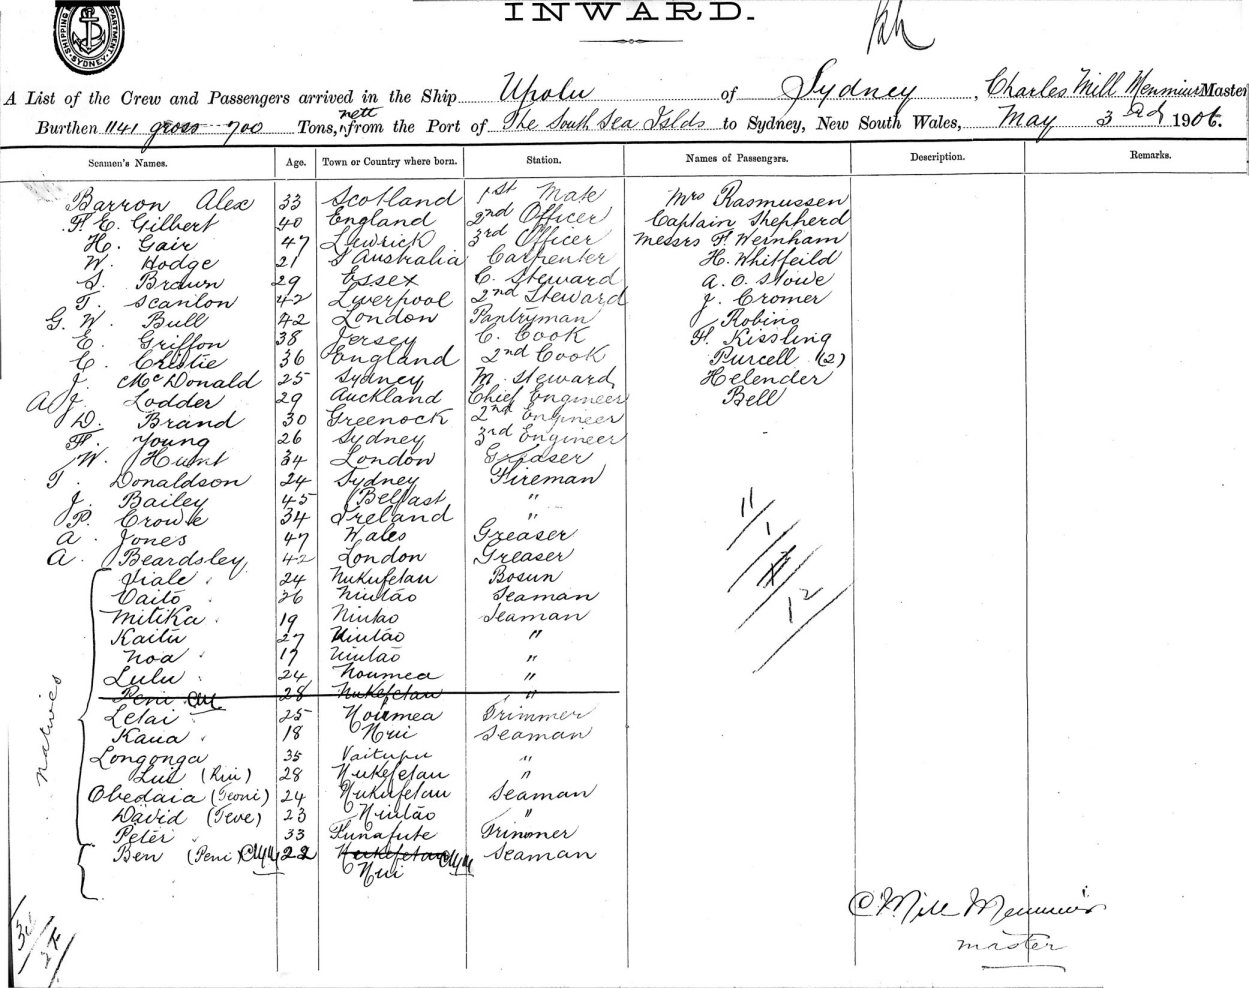 INWARD.
SHIPPING DEPARTMENT. SYDNEY
A List of the Crew and Passengers arrived in the Ship Upolu of Sydney, Charles Mill Menmuir Master
Burthen 1141 gross 700 Tons, nett from the Port of The South Sea Islds to Sydney, New South Wales, May 3rd 1906.
Seamen's Names. Age. Town or Country where born. Station. Names of Passengers. Description. Remarks.
Barron Alex 33 Scotland 1st Mate Mrs Rasmussen
F. E. Gilbert 40 England 2nd Officer Captain Shepherd
H. Gair 47 Lerwick 3rd Officer Messrs F. Wernham
W. Hodge 21 S Australia Carpenter H. Whitfeild
S. Brown 29 Essex C. Steward A. O. Stowe
T. Scanlon 42 Liverpool 2nd Steward J. Cromer
G. W. Bull 42 London Pantryman J Robins
E. Griffon 38 Jersey C. Cook F. Kissling
C. Christie 36 England 2nd Cook Purcell (2)
J. McDonald 25 Sydney M. Steward Helender
A J. Lodder 29 Auckland Chief Engineer Bell
D. Brand 30 Greenock 2nd Engineer
F. Young 26 Sydney 3rd Engineer
W. Hunt 34 London Greaser
T. Donaldson 24 Sydney Fireman
J. Bailey 45 Belfast "
P. Crowle 34 Ireland "
A. Jones 47 Wales Greaser
A. Beardsley 42 London Greaser
natives
Viale 24 Nukufetau Bosun
Vaito 26 Niutāo Seaman
Mitika 19 Niutao Seaman
Kaitu 27 Niutāo "
Noa 17 Niutāo "
Lulu 24 Noumea "
Peni 28 Nukefetau "
Letai 25 Noumea Trimmer
Kaua 18 Nui Seaman
Longonga 35 Vaitupu "
Lui (Rui) 28 Nukefetau "
Obedaia (Teoni) 24 Nukufetau Seaman
David (Teve) 23 Niutāo "
Peter 33 Funafute Trimmer
Ben (Peni) CMM 22 Nukefetau CMM Seaman
Nui
11
1
12
C. Mill Menmuir
master
34